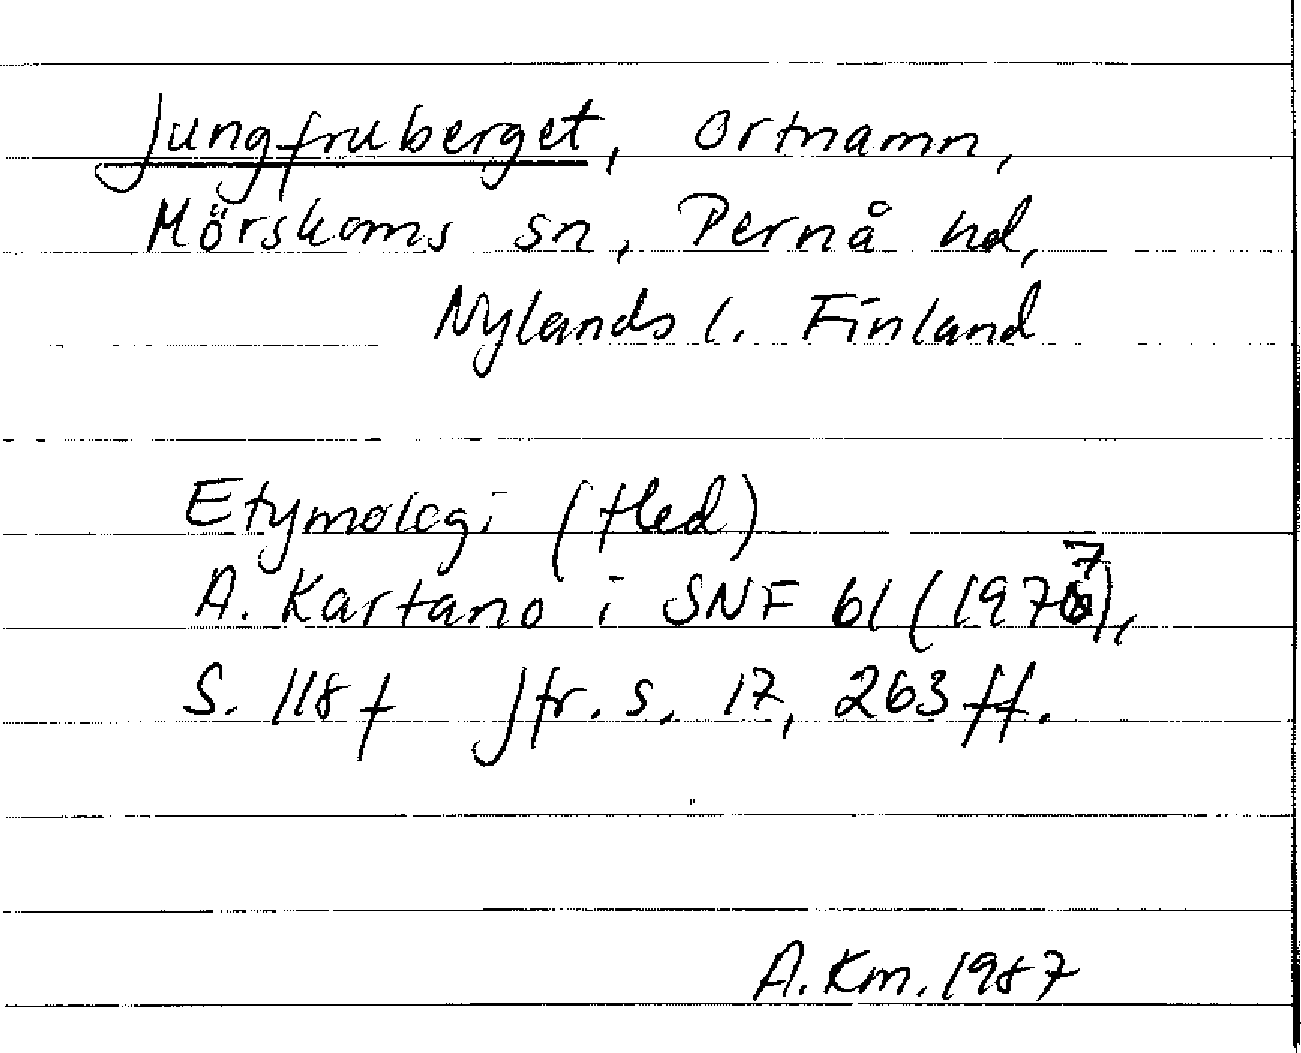 Jungfruberget, ortnamn,
Mörskoms sn, Pernå hd,
Nylands l. Finland
Etymologi (fled)
A. Kartano i SNF 61 (1977),
S. 118 f jfr. s. 17, 263 ff.
A. Km. 1987